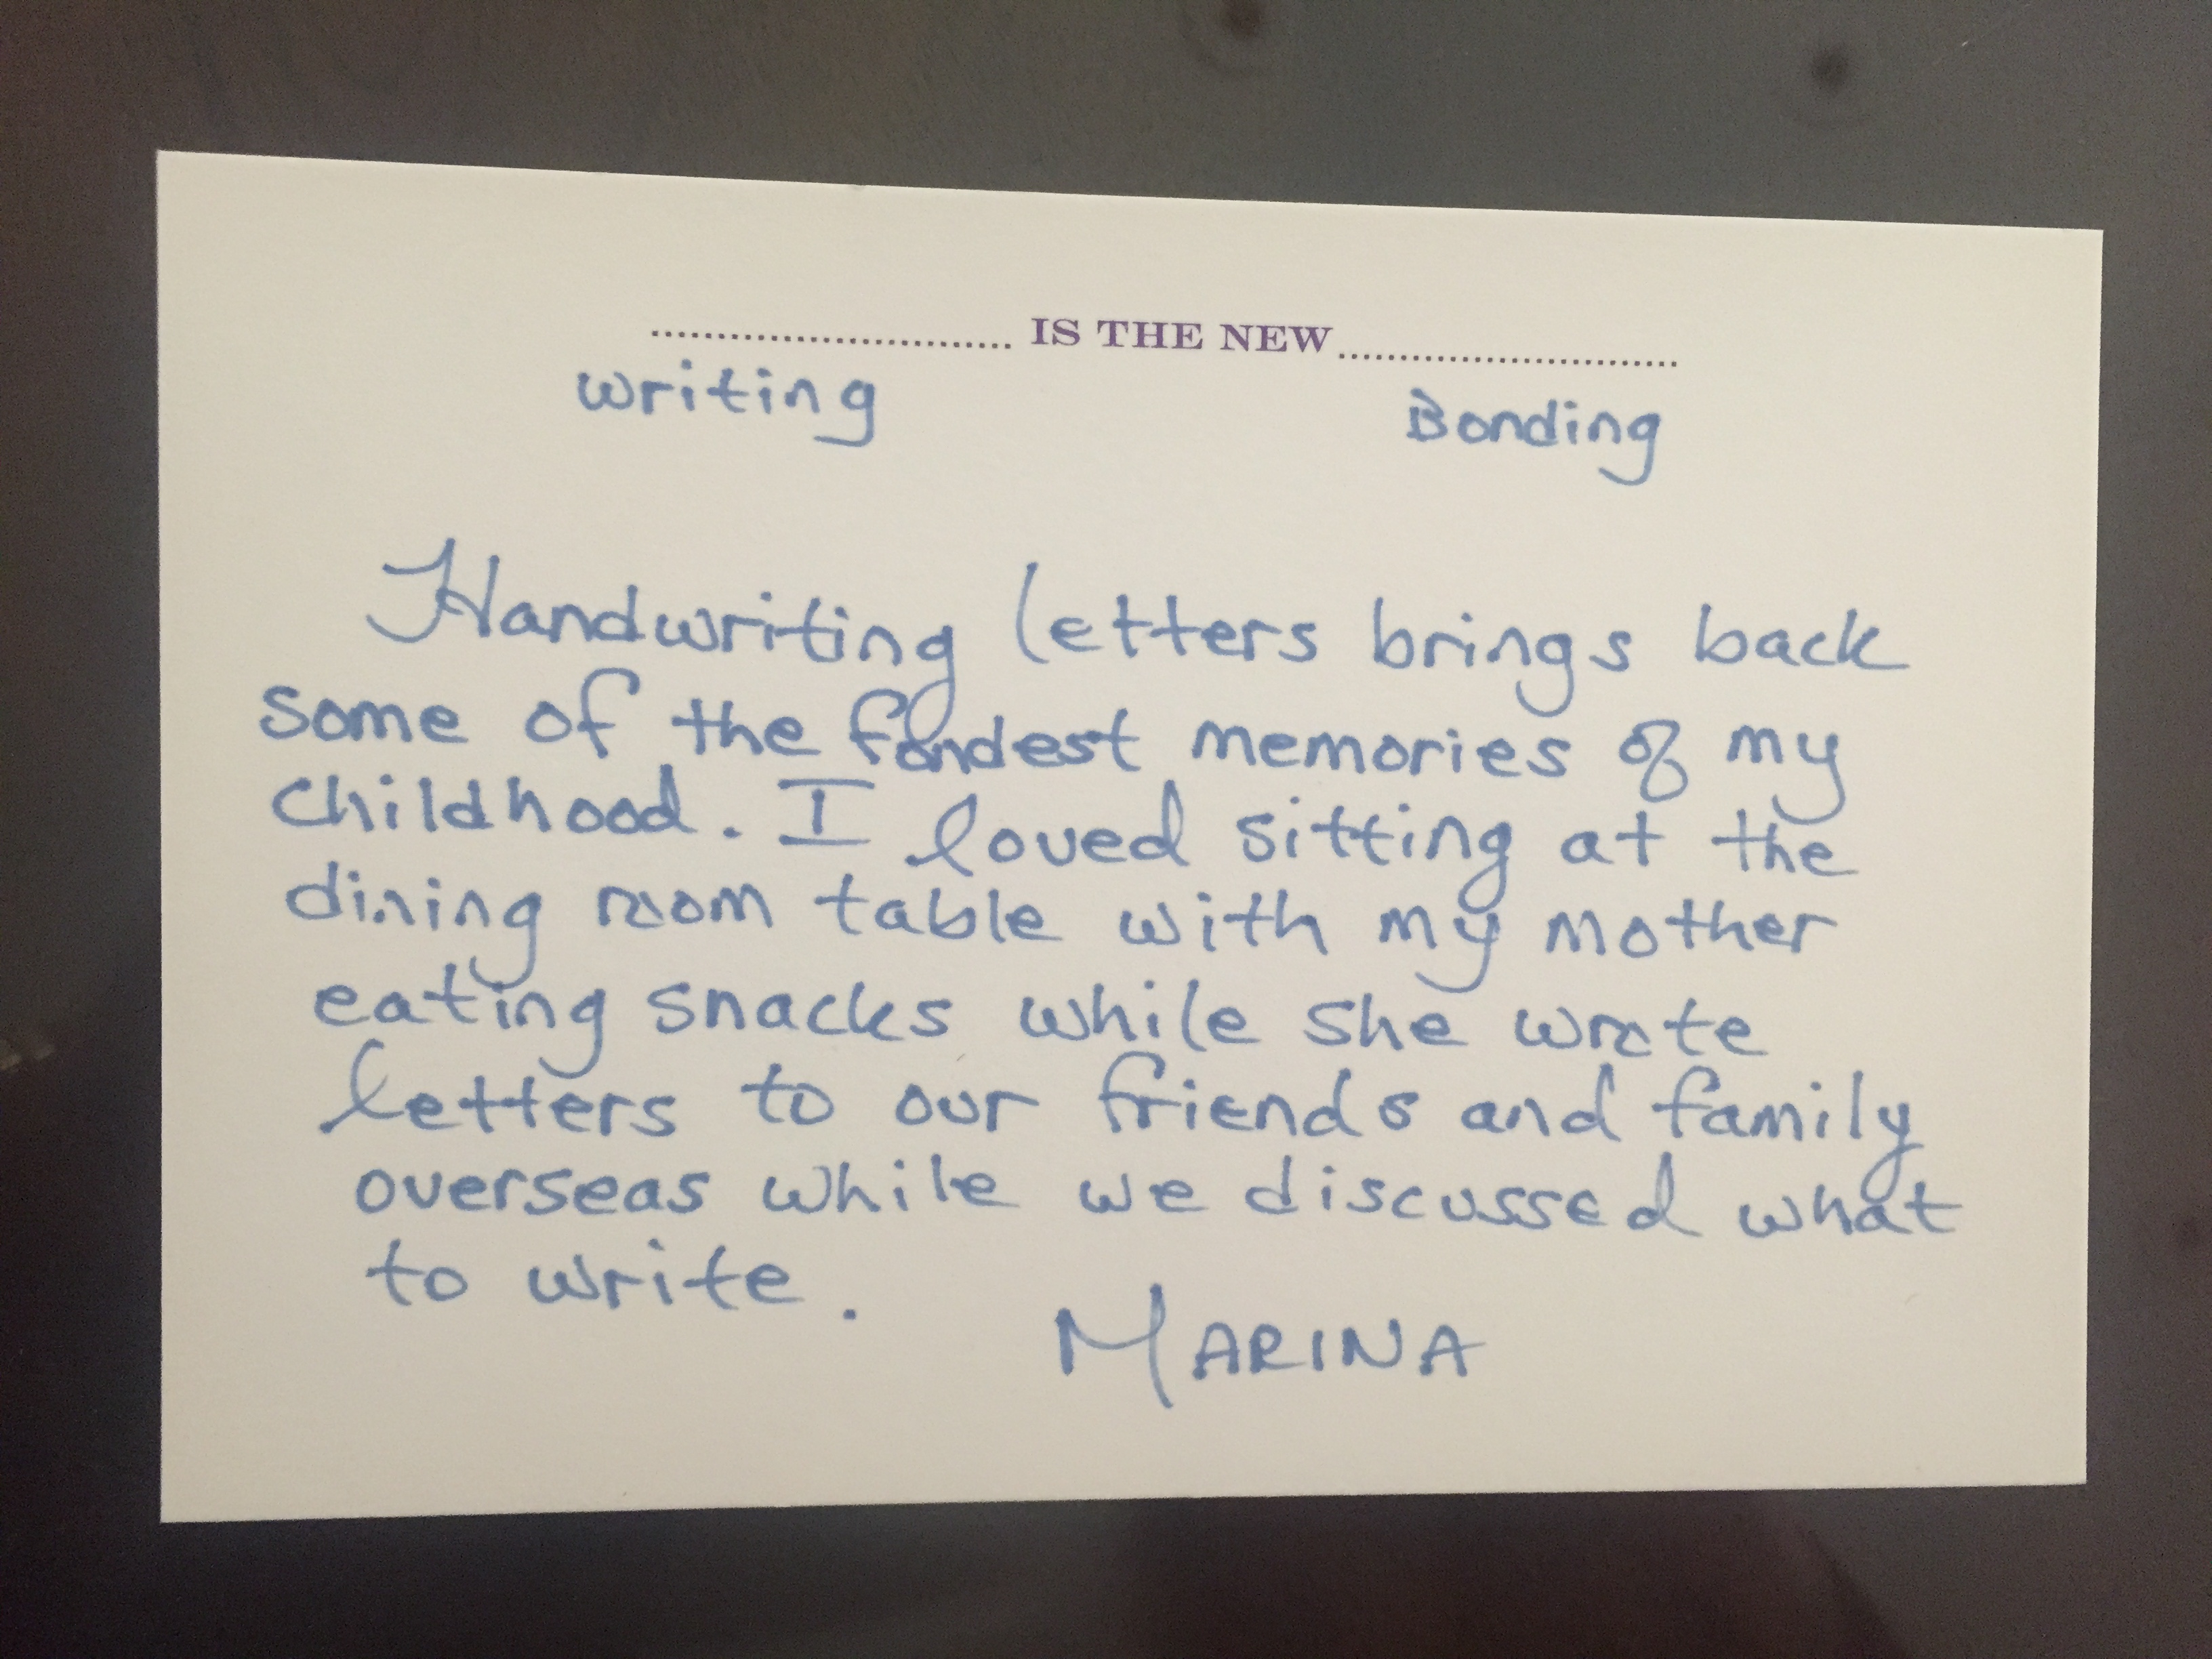 ........................... IS THE NEW ...........................
writing Bonding
Handwriting letters brings back
some of the fondest memories of my
childhood. I loved sitting at the
dining room table with my mother
eating snacks while she wrote
letters to our friends and family
overseas while we discussed what
to write.
MARINA